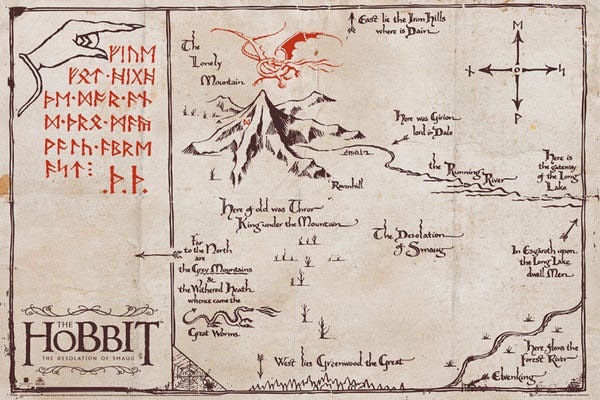 ᚠᛁᚢᛖ
ᚠᛟᛏ·ᚻᛁᚷᚻ
ᚦᛖ·ᛞᚩᚱ·ᚪᚾ
ᛞ·ᚦᚱᛟ·ᛗᚪᚣ
ᚹᚪᛚᚳ·ᚪᛒᚱᛖ
ᚪᛋᛏ⋮
·ᚦ·ᚦ·
The
Lonely
Mountain
East lie the Iron Hills
where is Dain
ᛖ
ᚾ
ᛋ
ᚹ
Here was Girion
lord in Dale
the Running River
Here is
the gateway
of the Long
Lake
Ravenhill
Here of old was Thror
King under the Mountain
The Desolation
of Smaug
Far
to the North
are
the Grey Mountains
&
the Withered Heath
whence came the
Great Worms
In Esgaroth upon
the Long Lake
dwell Men
THE
HOBBIT
THE DESOLATION OF SMAUG
West lies Greenwood the Great
Here flows the
Forest River
Elvenking